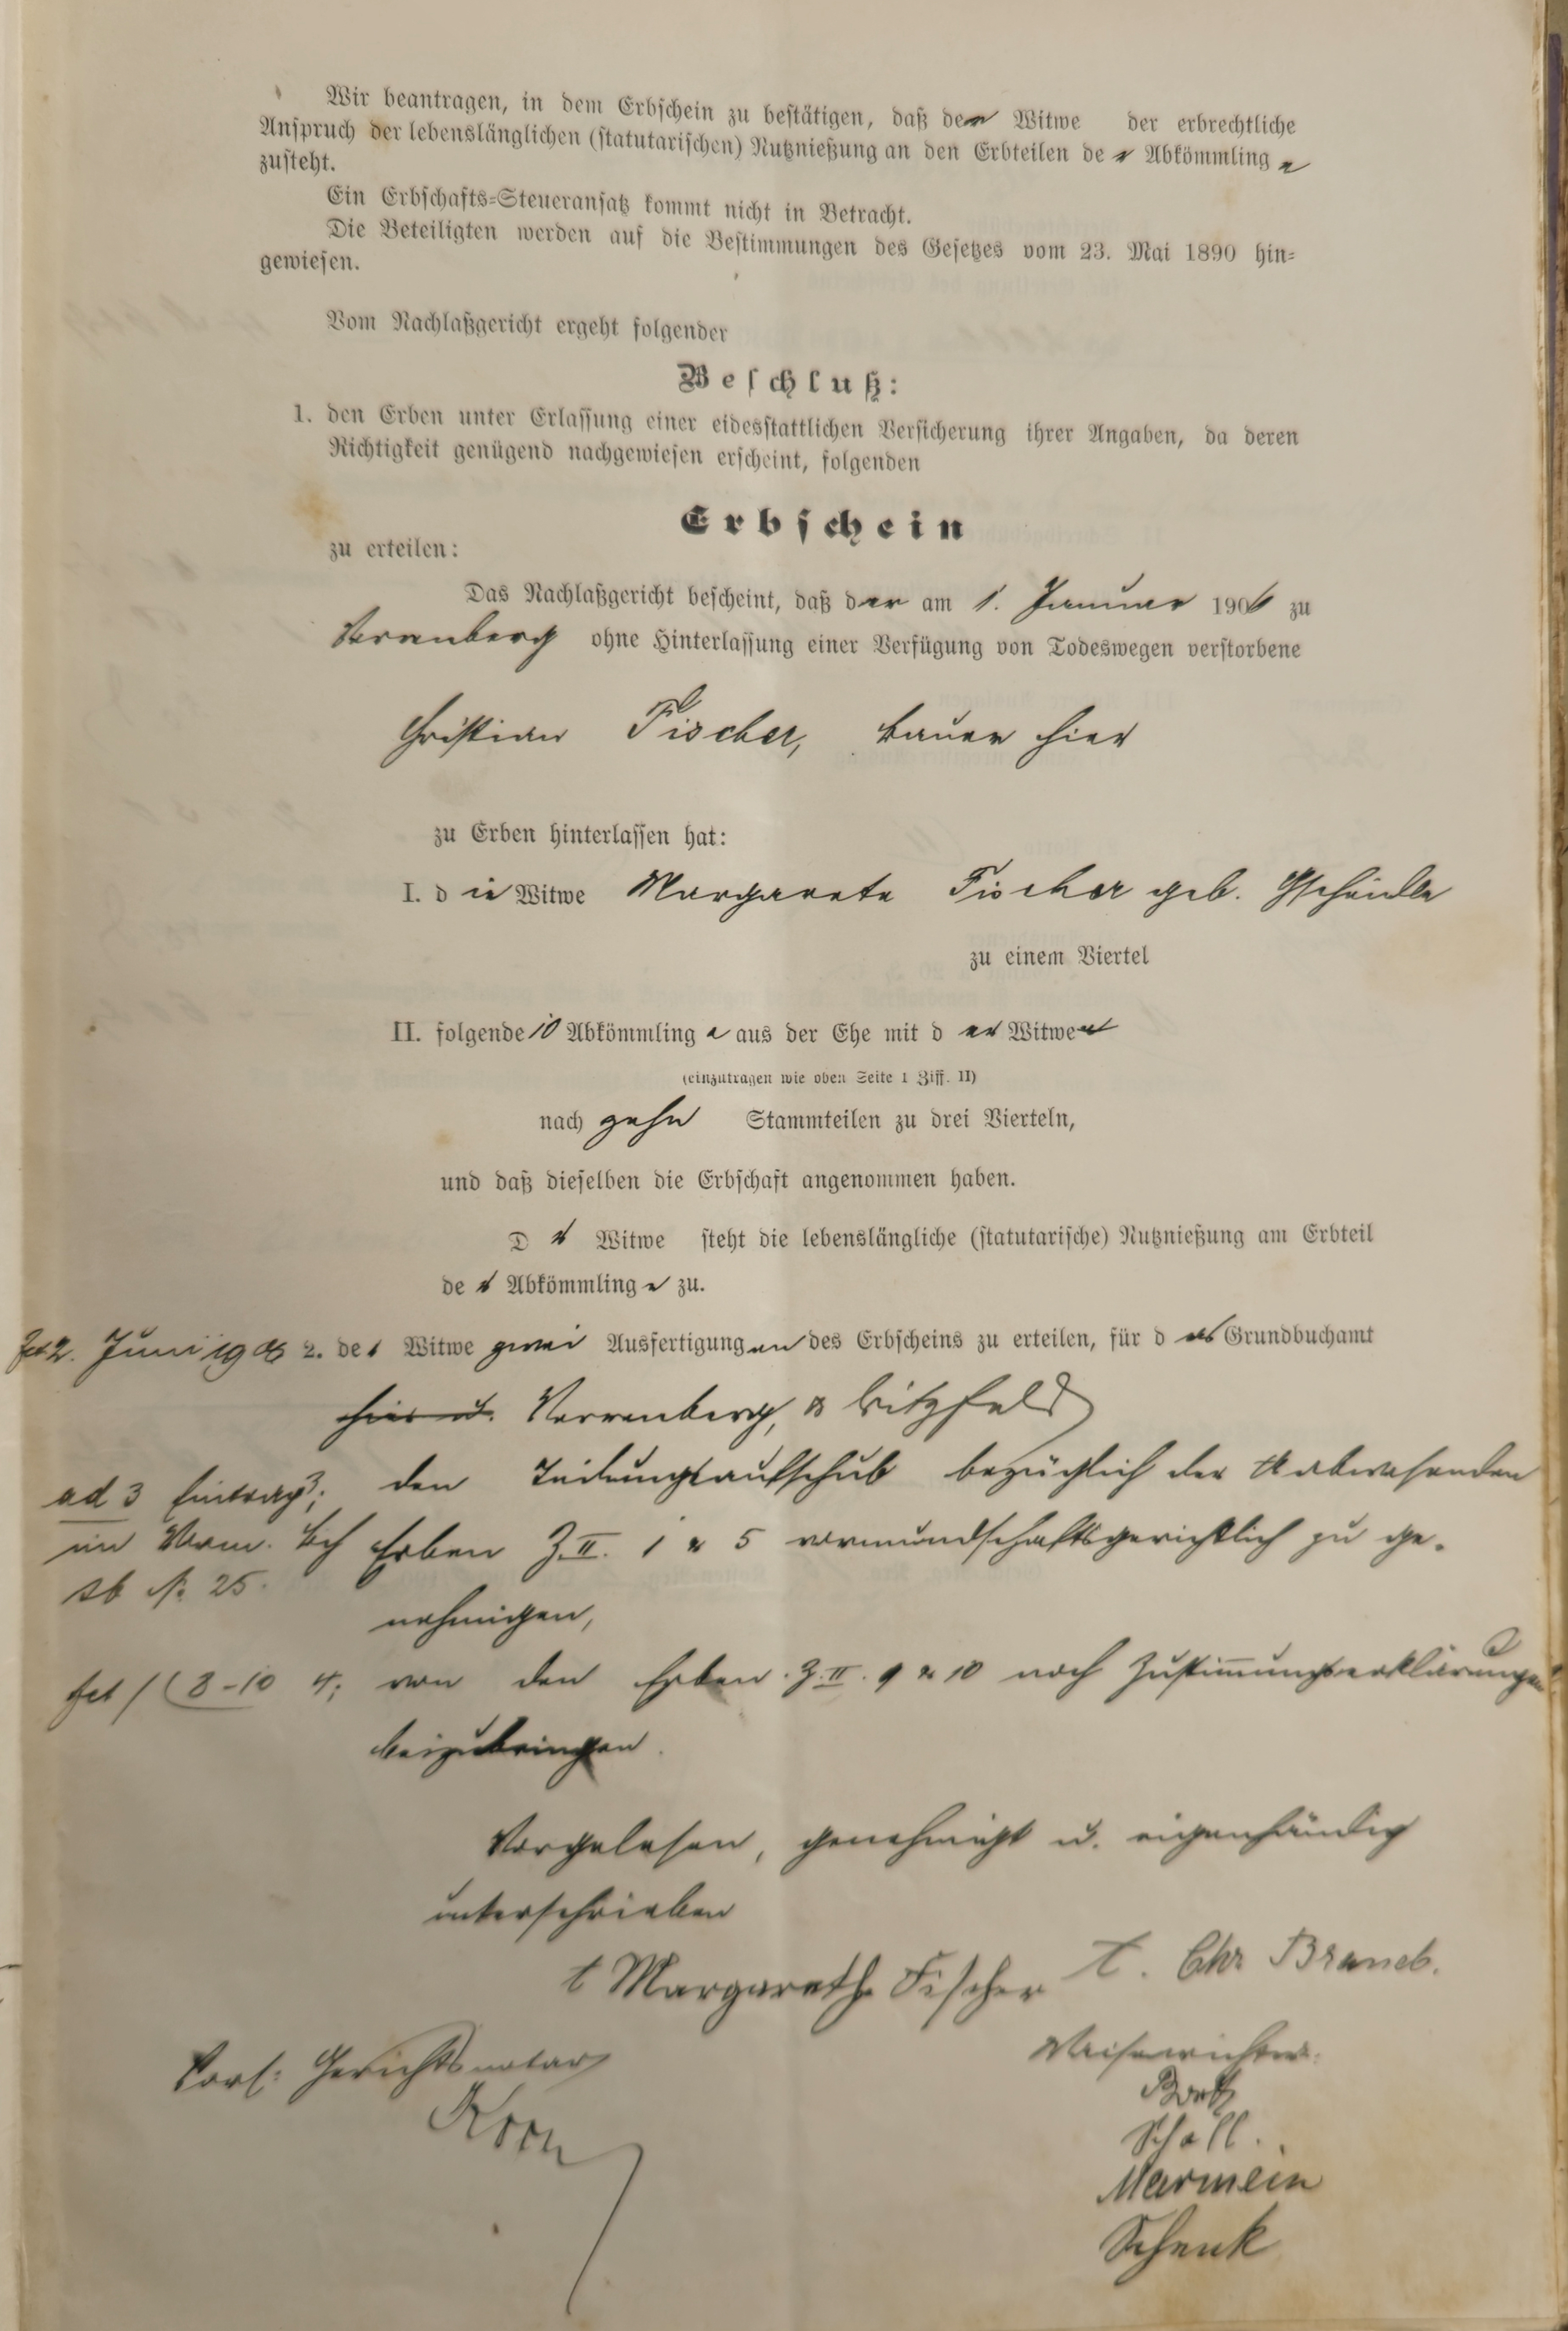 Wir beantragen, in dem Erbschein zu bestätigen, daß der Witwe der erbrechtliche
Anspruch der lebenslänglichen (statutarischen) Nutznießung an den Erbteilen der Abkömmlinge
zusteht.
Ein Erbschafts-Steueransatz kommt nicht in Betracht.
Die Beteiligten werden auf die Bestimmungen des Gesetzes vom 23. Mai 1890 hin-
gewiesen.
Vom Nachlaßgericht ergeht folgender
Beschluß:
1. den Erben unter Erlassung einer eidesstattlichen Versicherung ihrer Angaben, da deren
Richtigkeit genügend nachgewiesen erscheint, folgenden
Erbschein
zu erteilen:
Das Nachlaßgericht bescheint, daß der am 1. Januar 1906 zu
ohne Hinterlassung einer Verfügung von Todeswegen verstorbene
Christian Fischer, Bauer hier
zu Erben hinterlassen hat:
I. die Witwe Margarete Fischer geb. Gscheidle
zu einem Viertel
II. folgende 10 Abkömmlinge aus der Ehe mit der Witwe
(einzutragen wie oben Seite 1 Ziff. II)
nach zehn Stammteilen zu drei Vierteln,
und daß dieselben die Erbschaft angenommen haben.
Dr Witwe steht die lebenslängliche (statutarische) Nutznießung am Erbteil
der Abkömmlinge zu.
2. Juni 1906 2. der Witwe zwei Ausfertigungen des Erbscheins zu erteilen, für das Grundbuchamt
hier u. Verrenberg, & Bitzfeld
ad 3 Eintrag 3; den Teilungsaufschub bezüglich der Anwesenden
im Vorm. Erben Z. II. 1 & 5 vormundschaftsgerichtlich zu ge-
No. 25. nehmigen,
fct / (8-10 4; von den Erben Z. II. 9 & 10 noch Zustimmungserklärungen
beizubringen.
Vorgelesen, genehmigt u. eigenhändig
unterschrieben
t Margarethe Fischer t. Chr
Vors: Gerichtsnotar Waisenrichter:
Korn
Scholl.
Marmein
Schenk